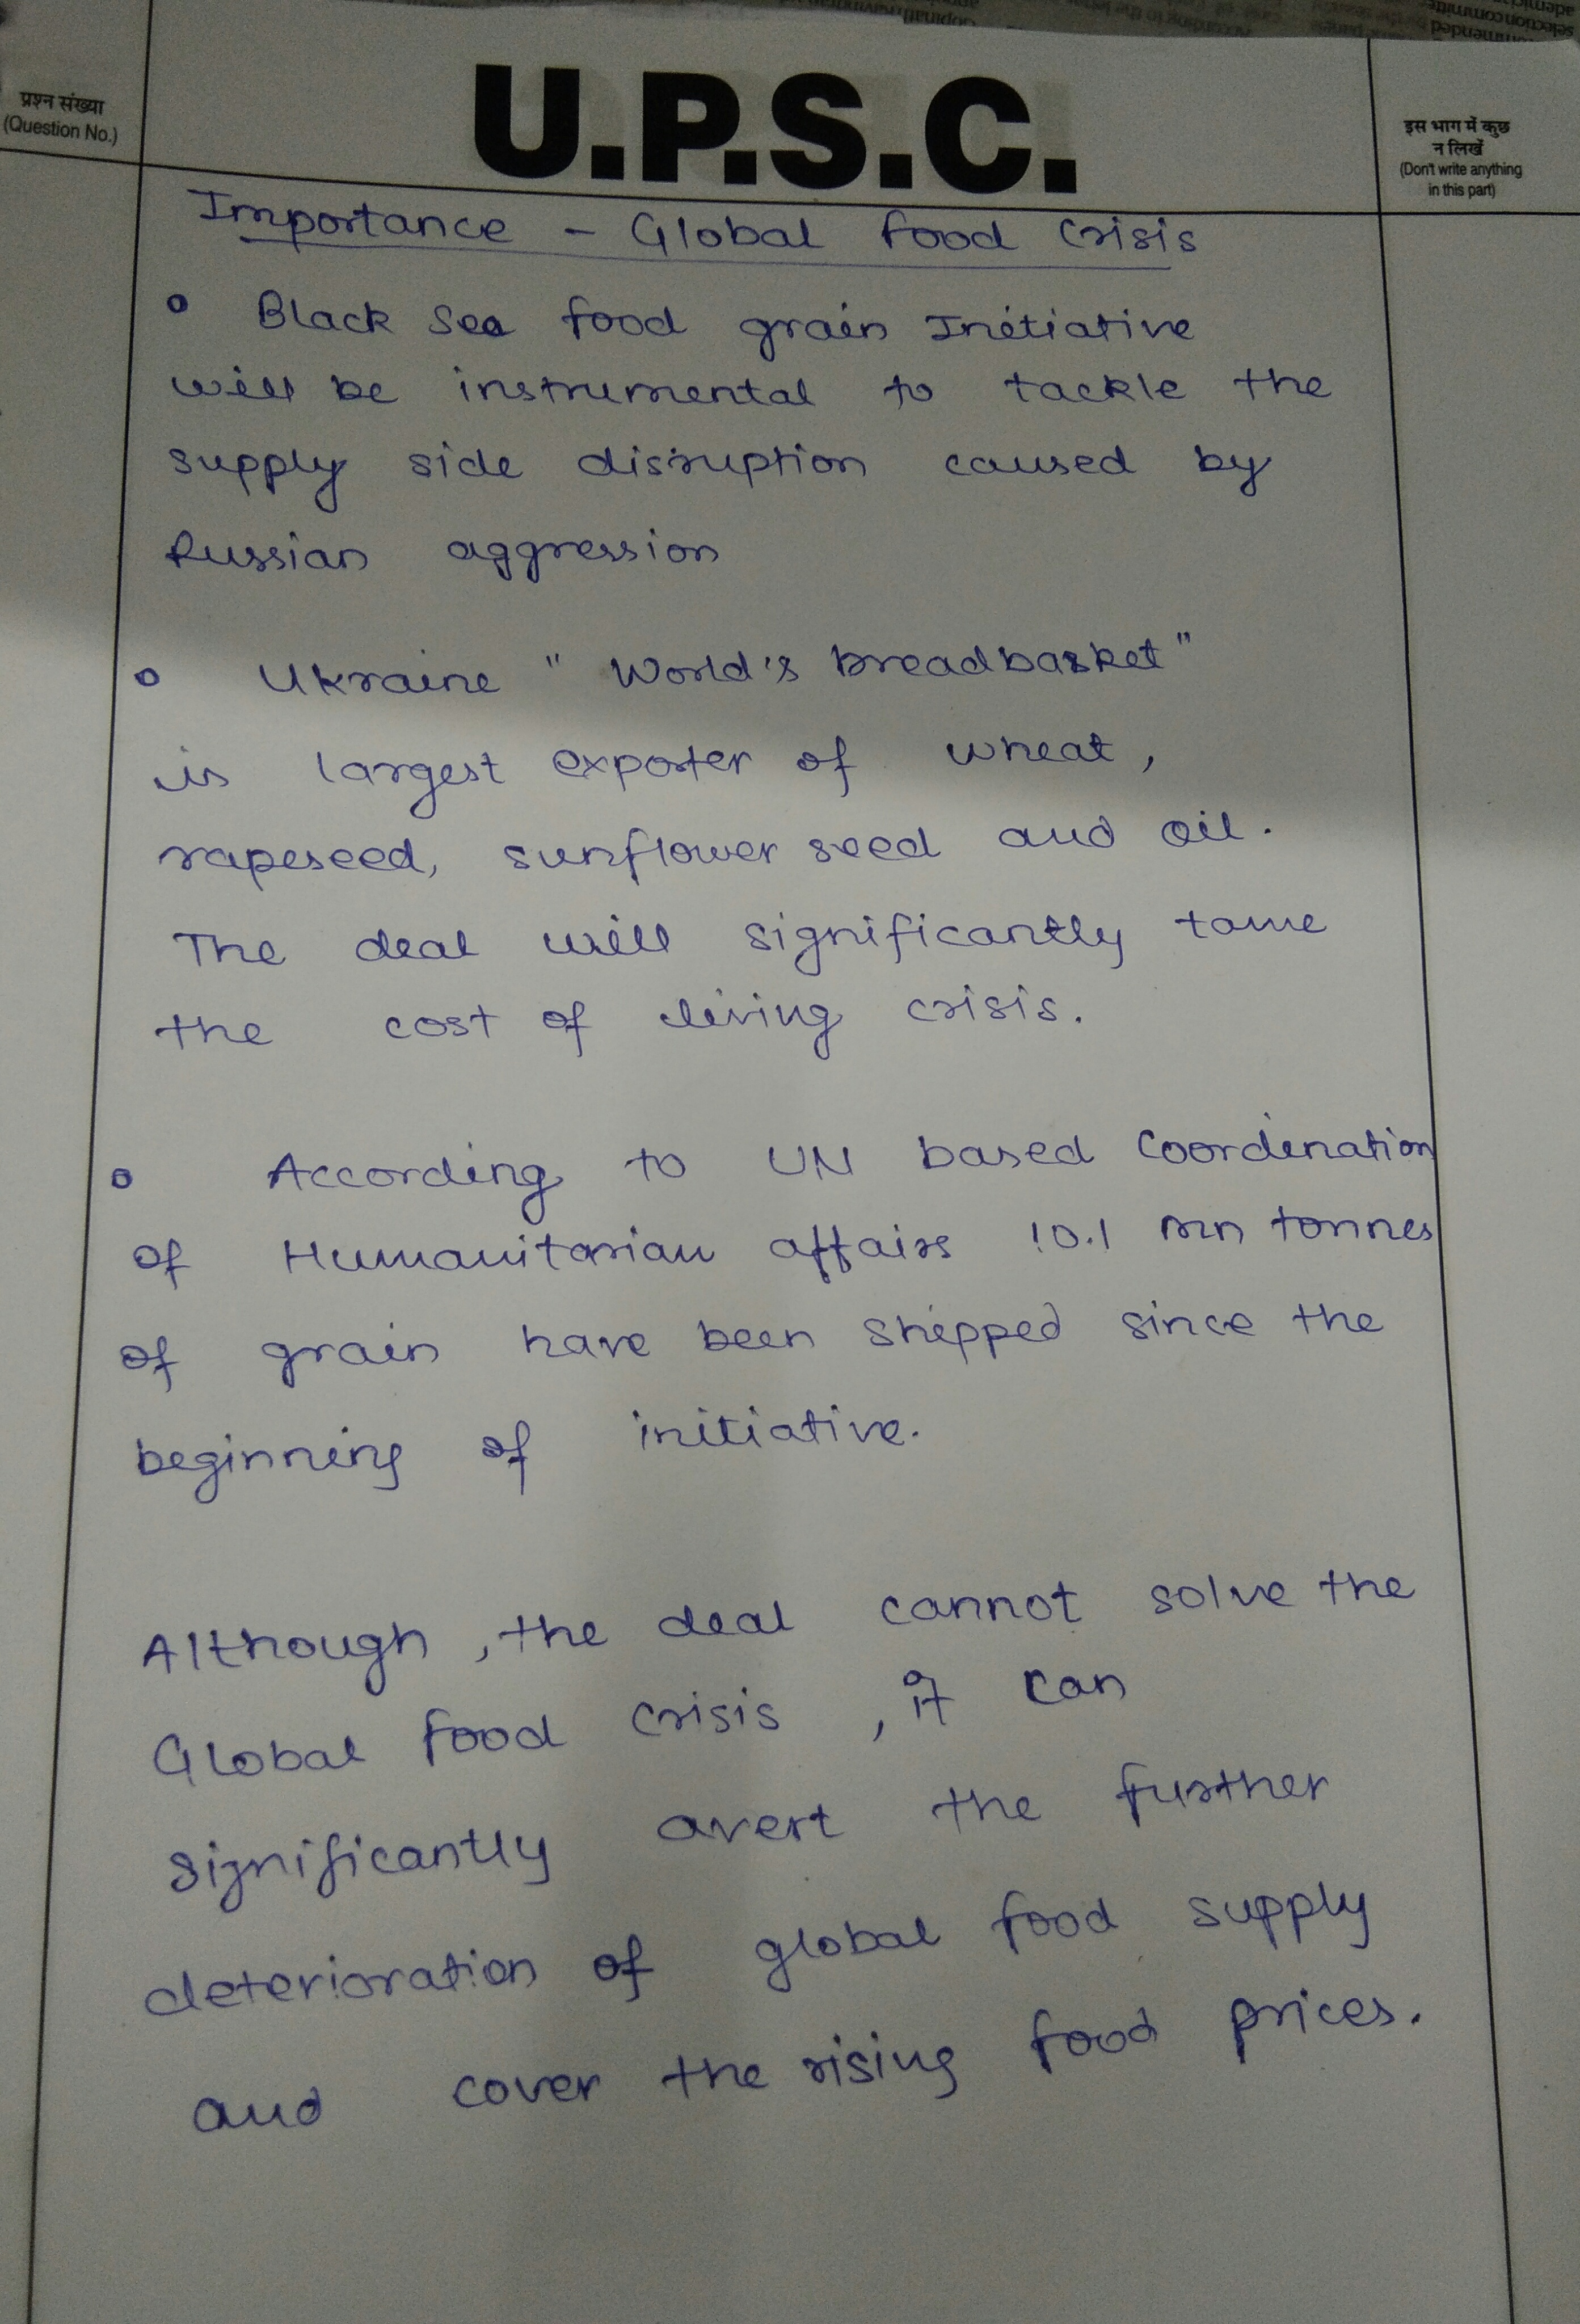 प्रश्न संख्या
(Question No.)
U.P.S.C.
इस भाग में कुछ
न लिखें
(Don't write anything
in this part)
Importance - Global food crisis
Black Sea food grain Initiative
will be instrumental to tackle the
supply side disruption caused by
Russian aggression
Ukraine " World's breadbasket"
is largest exporter of wheat,
rapeseed, sunflower seed and oil.
The deal will significantly tame
the cost of living crisis.
According to UN based Coordination
of Humanitarian affairs 10.1 mn tonnes
of grain have been shipped since the
beginning of initiative.
Although, the deal cannot solve the
Global food crisis, it can
significantly avert the further
deterioration of global food supply
and cover the rising food prices.